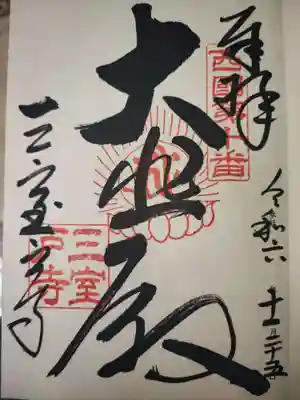 奉拝
令和六
十一月二十五
西国第十番
大悲殿
三室戸寺
三室
戸寺